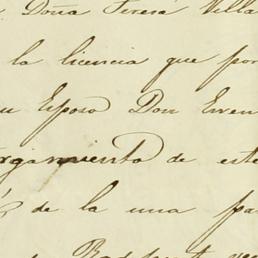 Doña Teresa Villa
la licencia que por
su Esposo Don
orgamiento de este
de la una pa